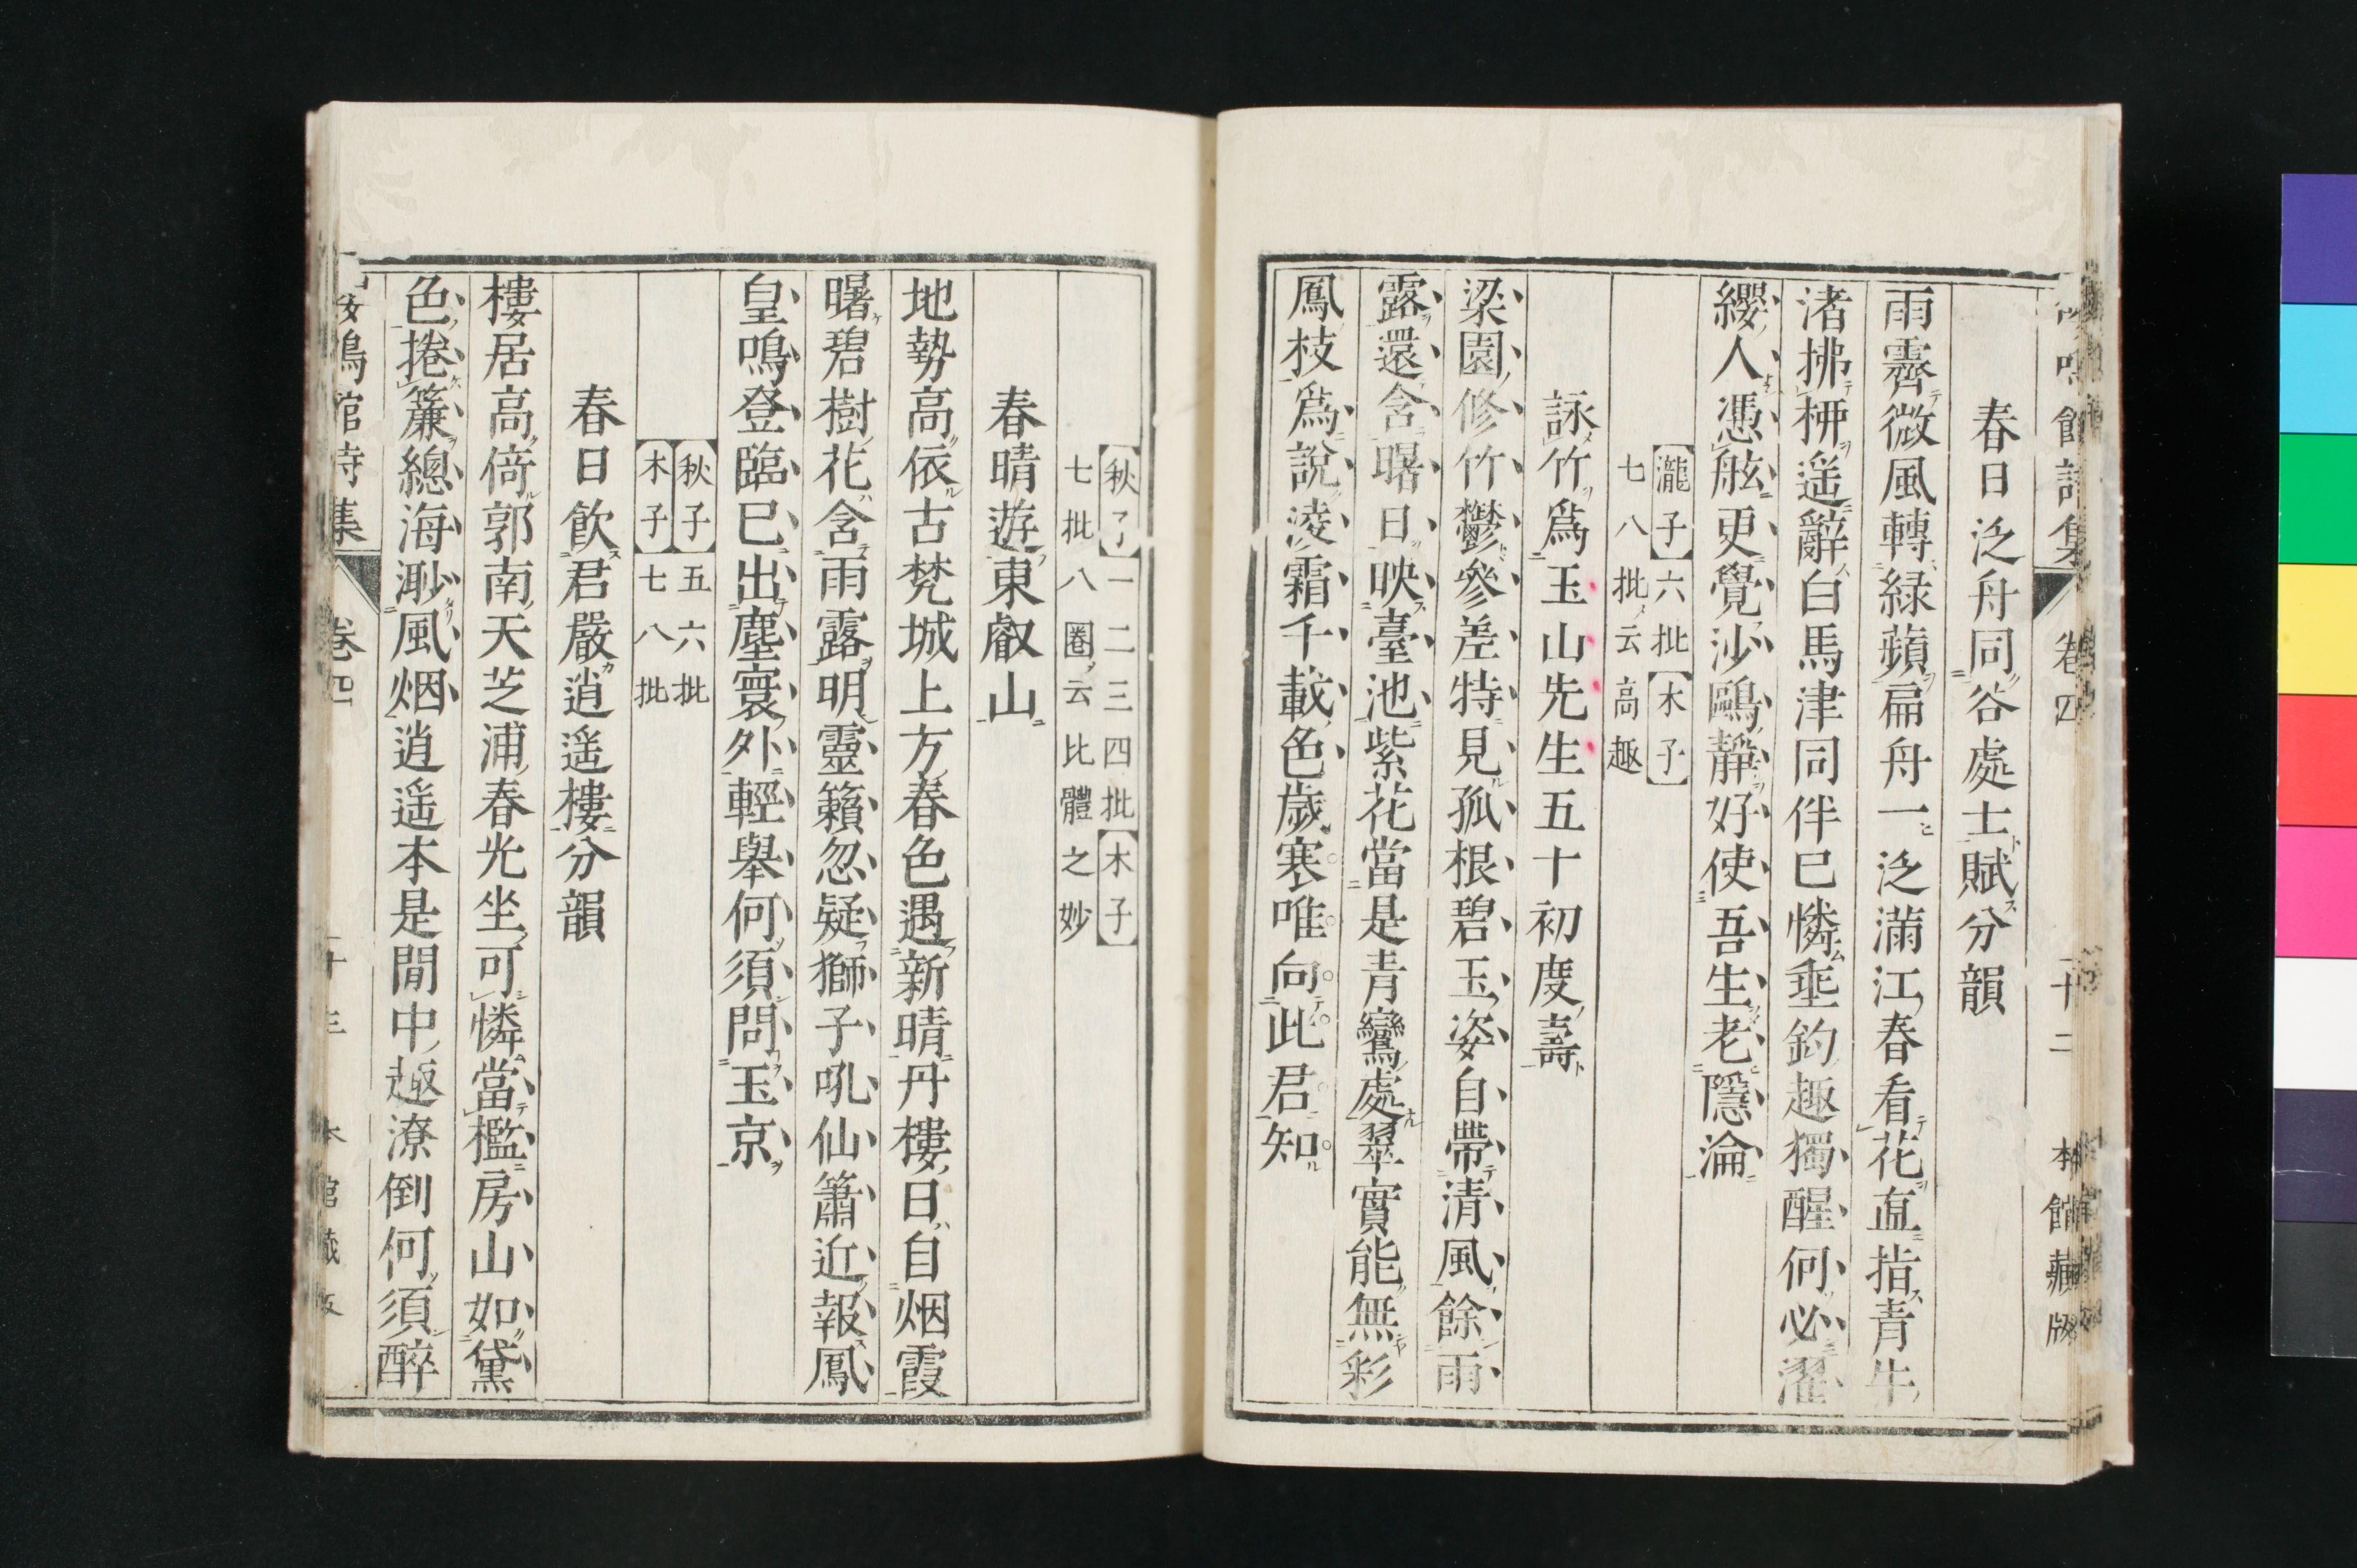 春日泛舟同谷處士賦分韻
雨霽微風轉緑蘋扁舟一泛滿江春看花直指青牛
渚拂栟遥辭白馬津同伴已憐垂釣趣獨醒何必濯
纓人憑舷更覺沙鷗靜好使吾生老隱淪
【瀧子】六批【木子】
七八批云高趣
詠竹爲玉山先生五十初度壽
梁園修竹鬱參差特見孤根碧玉姿自帶清風餘雨
露還含曙日映臺池紫花當是青鸞處翠實能無彩
鳳枝爲說凌霜千載色歲寒唯向此君知
卷四
十二
館藏版
【秋子】一二三四批【木子】
七批八圏云比體之妙
春晴遊東叡山
地勢高依古梵城上方春色遇新晴丹樓日自烟霞
曙碧樹花含雨露明靈籟忽疑獅子吼仙簫近報鳳
皇鳴登臨已出塵寰外輕舉何須問玉京
【秋子】五六批
【木子】七八批
春日飲君嚴逍遥樓分韻
樓居高倚郭南天芝浦春光坐可憐當檻房山如黛
色捲簾總海渺風烟逍遥本是閒中趣潦倒何須醉
館詩集
卷四
十三
館藏版